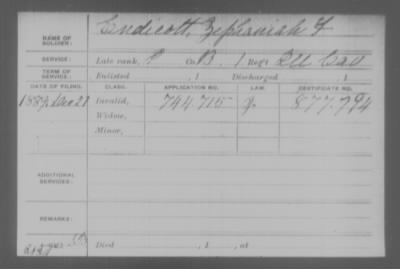 NAME OF SOLDIER: Endicott, Zephaniah F
SERVICE: Late rank, P Co. B. 1 Reg't Ill Cav
TERM OF SERVICE: Enlisted , 1 Discharged , 1
DATE OF FILING. CLASS. APPLICATION NO. LAW. CERTIFICATE NO.
1889, Dec 21 Invalid, 744.715 877.794
Widow,
Minor,
ADDITIONAL SERVICES:
REMARKS:
Died , 1 , at